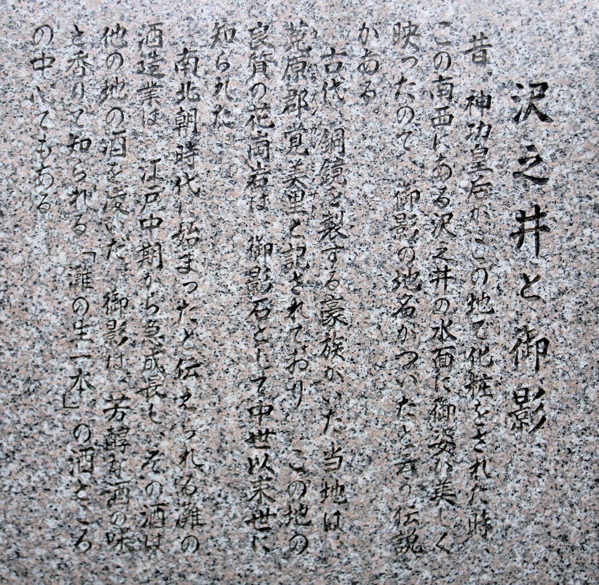 沢之井と御影
昔、神功皇后が、この地で化粧をされた時、
この南西にある沢之井の水面に御姿が美しく
映ったので 御影の地名がついたと云う伝説
がある
古代、銅鏡を製する豪族がいた当地は
菟原郡覓美里と記されており、この地の
良質の花崗岩は、御影石として中世以来世に
知られた
南北朝時代に始まったと伝えられる灘の
酒造業は、江戸中期から急成長し、その酒は
他の地の酒を凌いだ。御影は、芳醇な酒の味
と香りで知られる「灘の生一本」の酒どころ
の中心でもある